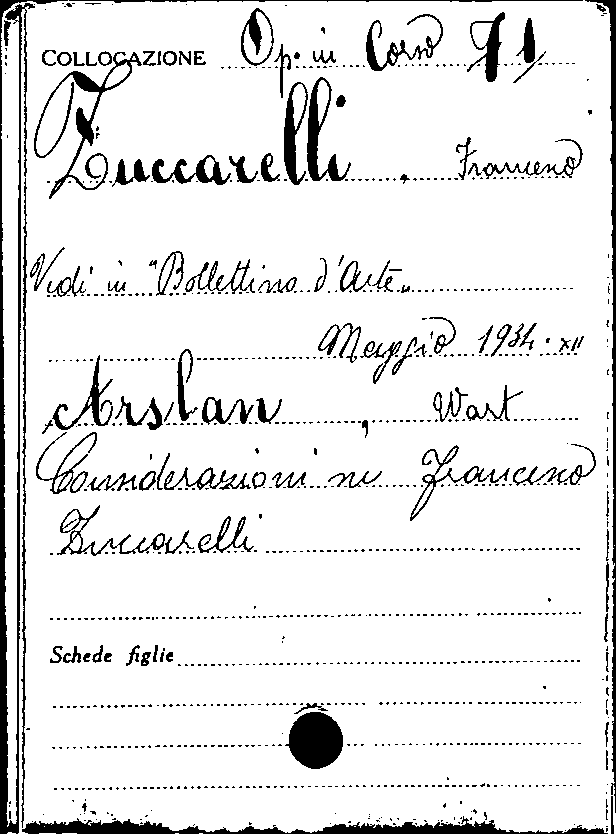 COLLOCAZIONE Op. in Corso 71
Zuccarelli, Francesco
Vedi in "Bollettino d'Arte"
Maggio 1934. XII
Arslan, Wart
Considerazioni su Francesco
Zuccarelli
Schede figlie